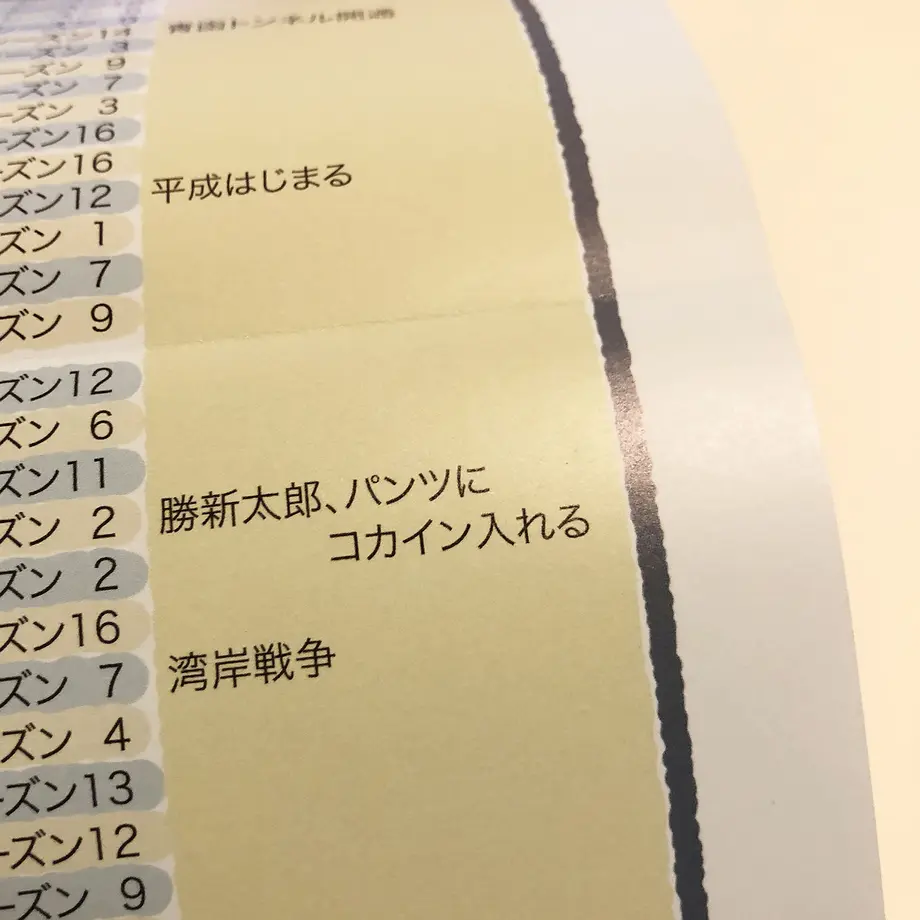 青函トンネル開通
ーズン 3
ーズン 9
ーズン 7
ーズン 3
ーズン16
ーズン16
ズン12
ズン 1
ズン 7
ズン 9
ズン12
ズン 6
ズン11
ズン 2
ズン 2
ズン16
ズン 7
ズン 4
ーズン13
ーズン12
ーズン 9
平成はじまる
勝新太郎、パンツに
コカイン入れる
湾岸戦争